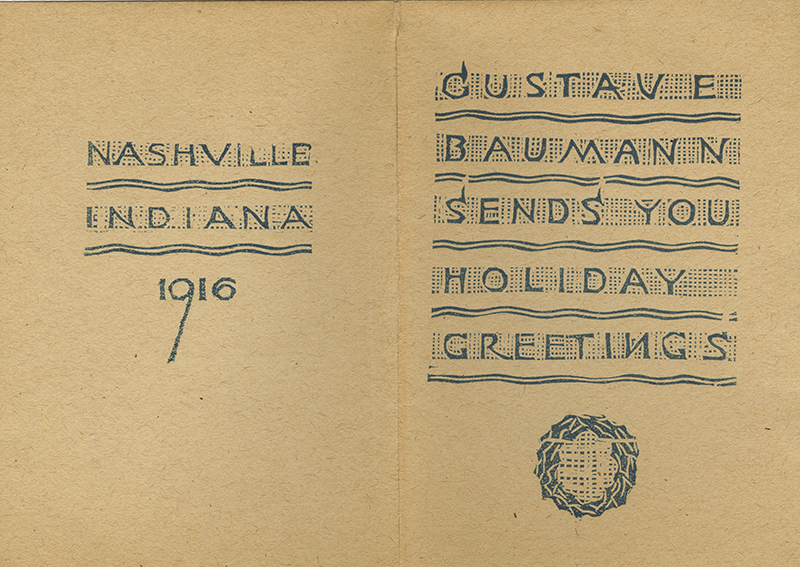 NASHVILLE
INDIANA
1916
GUSTAVE
BAUMANN
SENDS YOU
HOLIDAY
GREETINGS